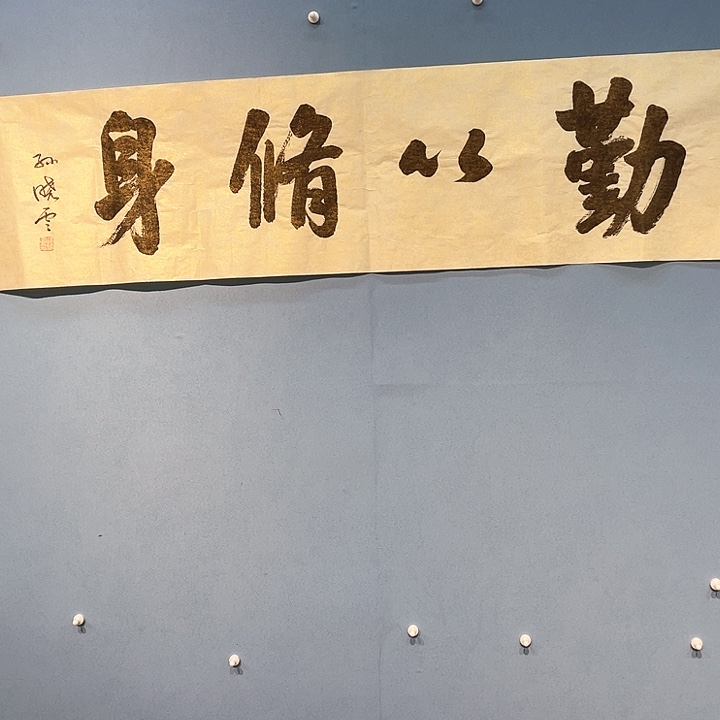 勤以脩身
孙晓云